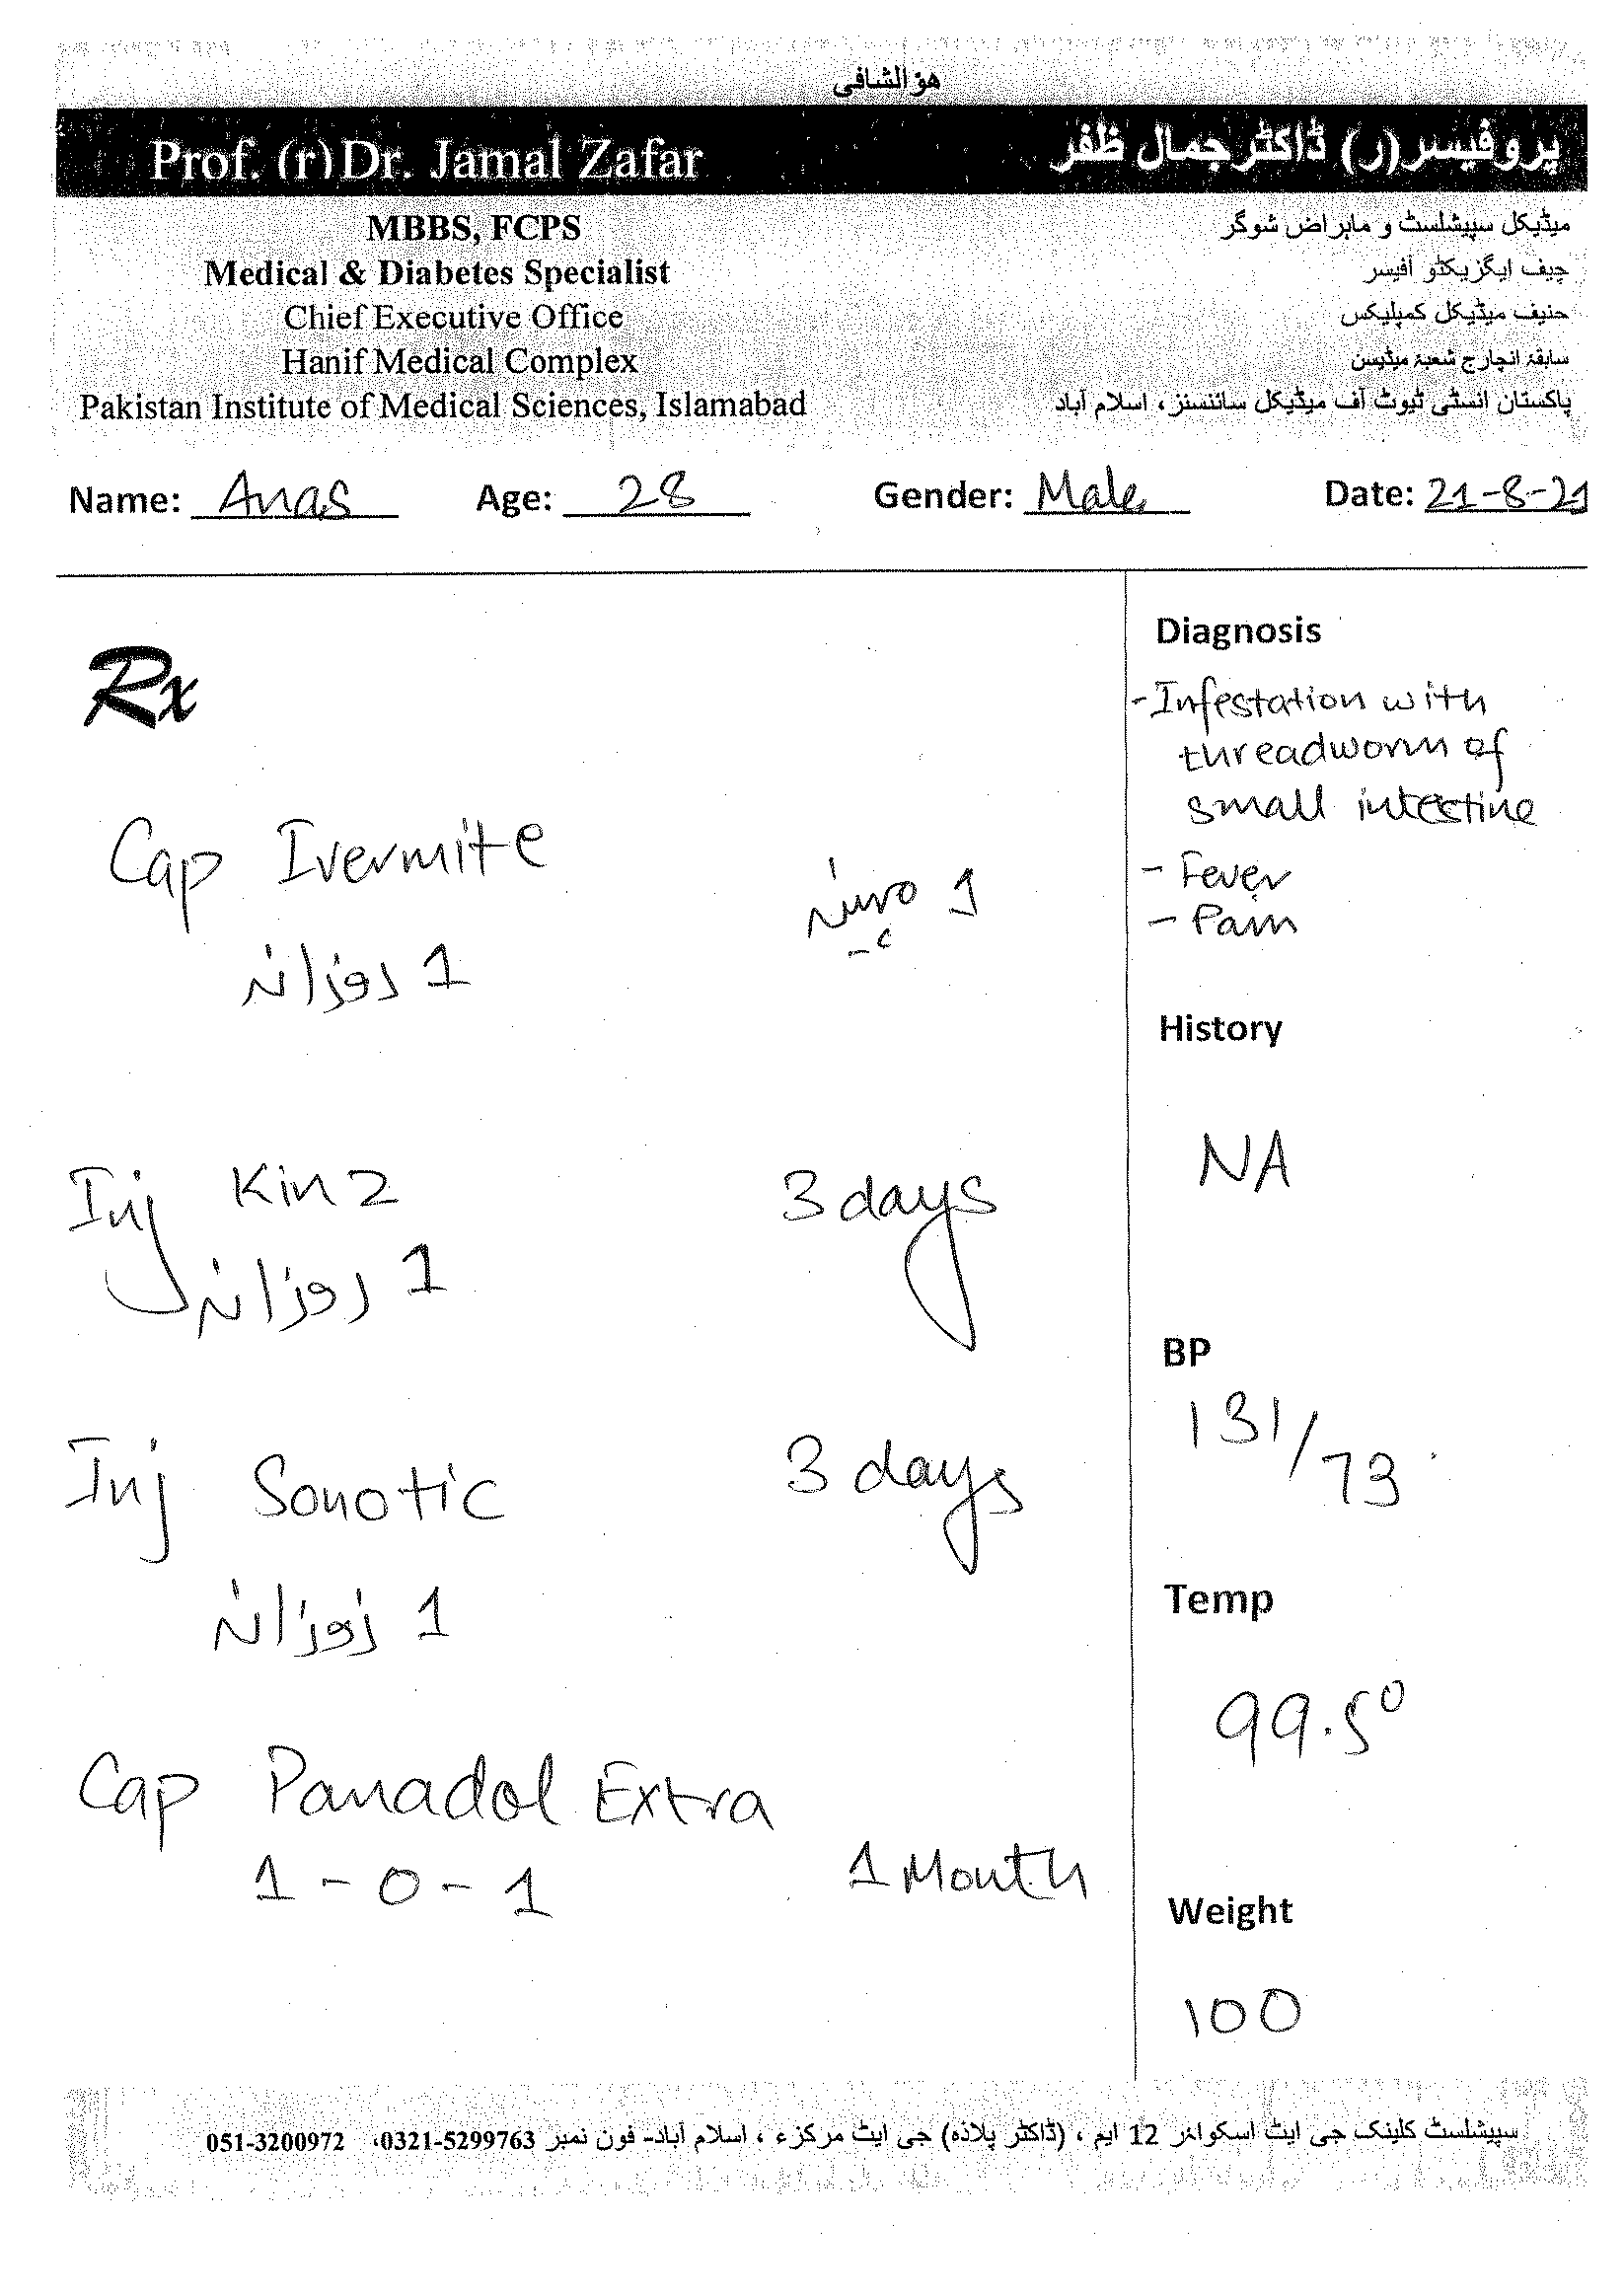 هو الشافی
Prof. (r) Dr. Jamal Zafar
پروفیسر(ر) ڈاکٹر جمال ظفر
MBBS, FCPS
Medical & Diabetes Specialist
Chief Executive Office
Hanif Medical Complex
Pakistan Institute of Medical Sciences, Islamabad
میڈیکل سپیشلسٹ و ماہر امراض شوگر
چیف ایگزیکٹو آفیسر
حنیف میڈیکل کمپلیکس
سابقہ انچارج شعبہ میڈیسن
پاکستان انسٹی ٹیوٹ آف میڈیکل سائنسز، اسلام آباد
Name: Anas Age: 28 Gender: Male Date: 21-8-21
Rx
Cap Ivermite
1 روزانہ
1
Inj Kinz 3 days
1 روزانہ
Inj Sonotic 3 days
1 روزانہ
Cap Panadol Extra
1 - 0 - 1 1 Month
Diagnosis
- Infestation with
threadworm of
small intestine
- Fever
- Pain
History
NA
BP
131/73
Temp
99.5°
Weight
100
سپیشلسٹ کلینک جی ایٹ اسکوائر 12 ایم ، (ڈاکٹر پلازہ) جی ایٹ مرکزء ، اسلام آباد- فون نمبر 0321-5299763، 051-3200972